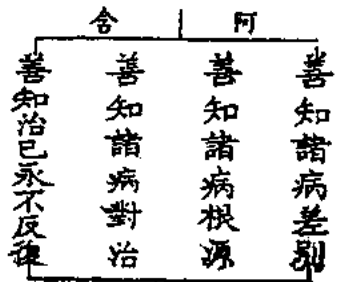 阿含
善知諸病差別
善知諸病根源
善知諸病對治
善知治已永不反復